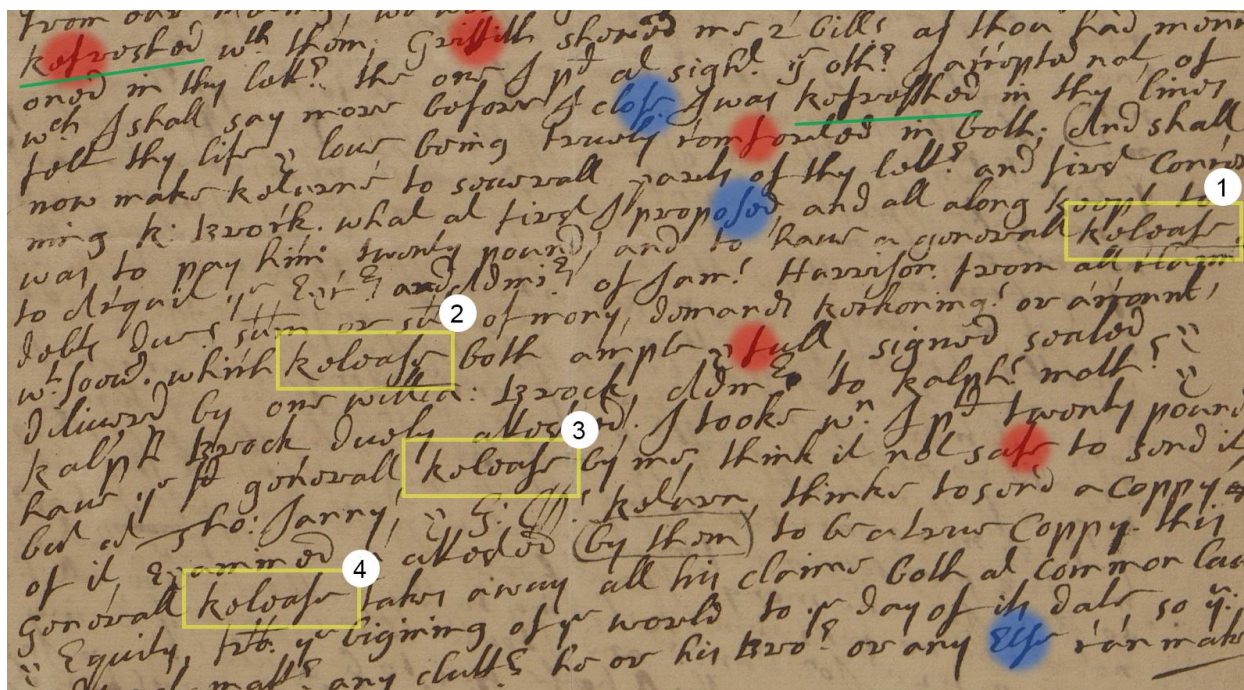 from our
refreshed wth them, Griffith shewed me 2 bills as thou had menti
oned in thy lettr the one I pd at sight ye othr I accepted not of
wch I shall say more before I close I was refreshed in thy lines
felt thy life & love being truely comforted in both; And shall
now make returne to severall parts of thy lettr and first Concer
ning R: Brock. what at first I proposed, and all along keept to 1
was to pay him twenty pound, and to have a generall release
to acquit ye Exrs and Admrs of Jam: Harrison from all Claims
debts dues sum or sums of mony, demands reckonings or account,
wtsoevr. which release both ample & full signed sealed 2
delivered by one willia: Brock Admr to Ralph: &
Ralph Brock duely attested. I tooke wn I pd twenty pound 3
have ye sd generall release by me, think it not safe to send it
but at Tho: Janny, & G: return, thinke to send a Coppy
of it, Examined & attested (by them) to be a true Coppy. this 4
Generall release takes away all his claims both at common law
& Equity, from ye bigining of ye world to ye day of its date so yt
any he or his Bro: or any Else can make